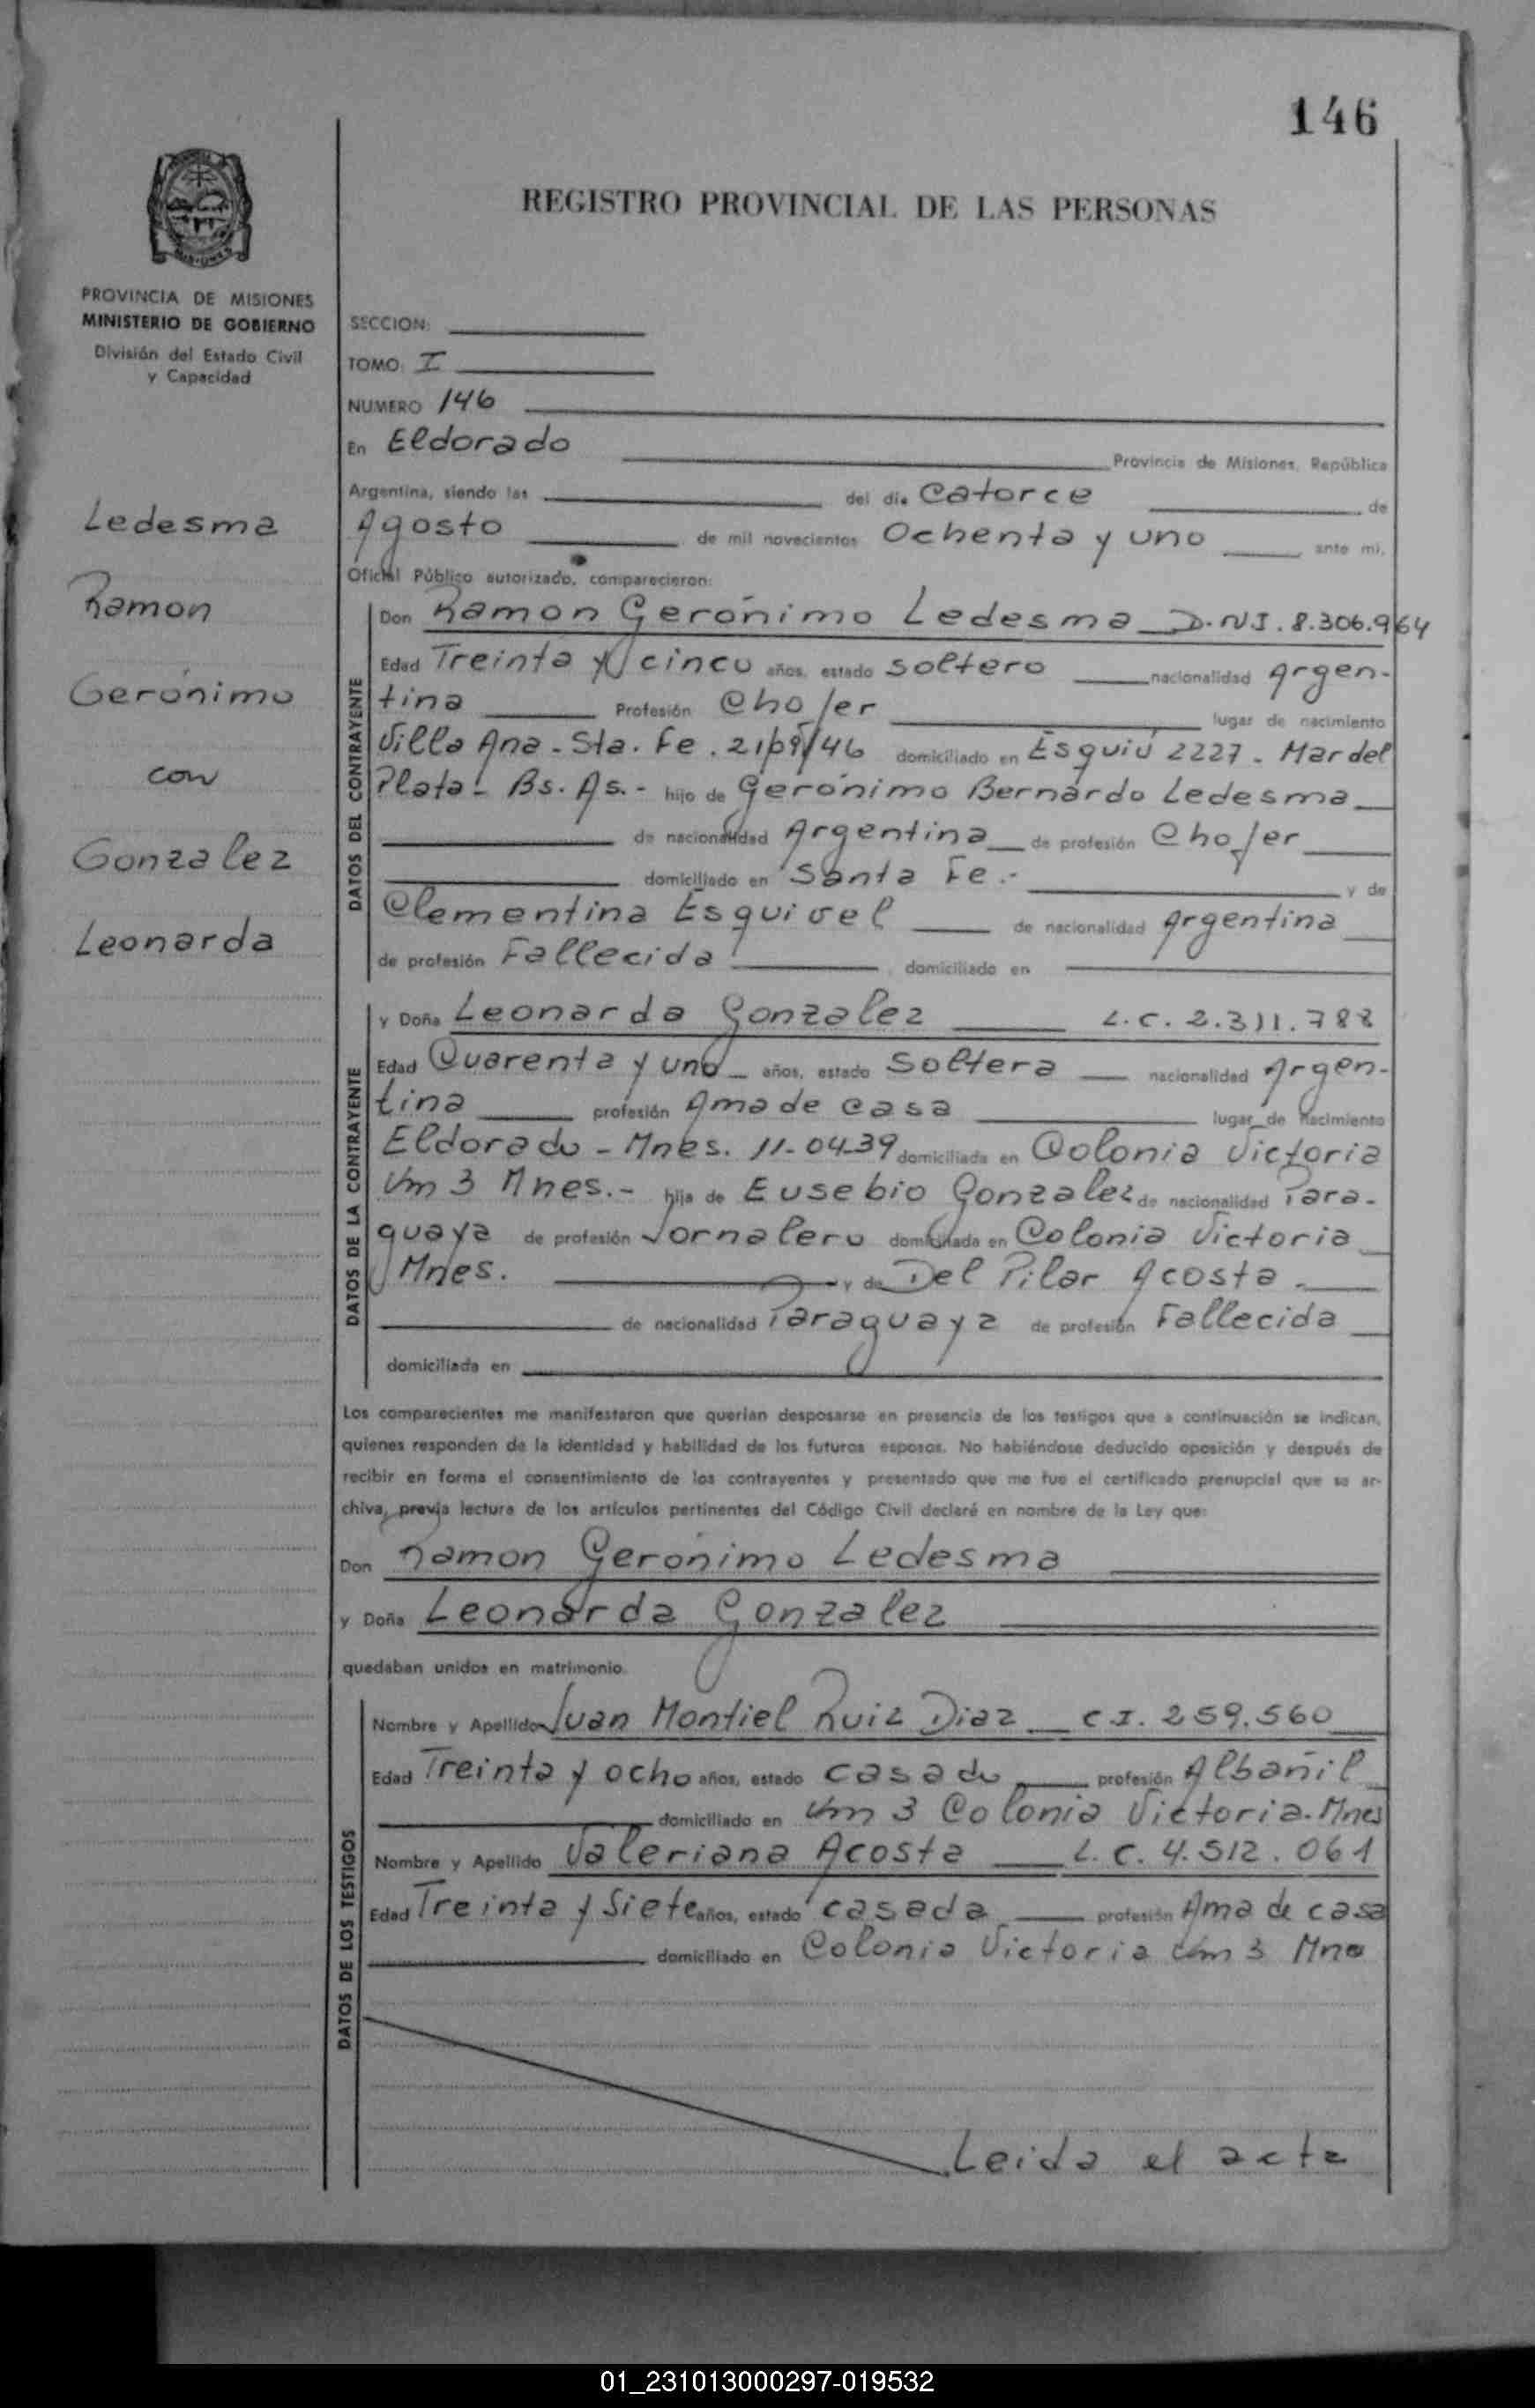 146
REGISTRO PROVINCIAL DE LAS PERSONAS
PROVINCIA DE MISIONES
MINISTERIO DE GOBIERNO
División del Estado Civil
y Capacidad
Ledesma
Ramon
Gerónimo
con
Gonzalez
Leonarda
SECCION:
TOMO: I
NUMERO 146
En Eldorado Provincia de Misiones, República
Argentina, siendo las del día Catorce de
Agosto de mil novecientos Ochenta y uno ante mí,
Oficial Público autorizado, comparecieron:
DATOS DEL CONTRAYENTE
Don Ramon Gerónimo Ledesma D.N.I. 8.306.964
Edad Treinta y cinco años, estado soltero nacionalidad Argen-
tina Profesión Chofer lugar de nacimiento
Villa Ana - Sta. Fe. 21/09/46 domiciliado en Esquiú 2227 - Mar del
Plata - Bs. As. - hijo de Gerónimo Bernardo Ledesma
de nacionalidad Argentina de profesión Chofer
domiciliado en Santa Fe.- y de
Clementina Esquivel de nacionalidad Argentina
de profesión Fallecida domiciliado en
DATOS DE LA CONTRAYENTE
y Doña Leonarda Gonzalez L.C. 2.311.788
Edad Quarenta y uno años, estado Soltera nacionalidad Argen-
tina profesión Ama de casa lugar de nacimiento
Eldorado - Mnes. 11-04-39 domiciliada en Colonia Victoria
Km 3 Mnes.- hija de Eusebio Gonzalez de nacionalidad Para-
guaya de profesión Jornalero domiciliada en Colonia Victoria
Mnes. y de Del Pilar Acosta.
de nacionalidad Paraguaya de profesión Fallecida
domiciliada en
Los comparecientes me manifestaron que querían desposarse en presencia de los testigos que a continuación se indican,
quienes responden de la identidad y habilidad de los futuros esposos. No habiéndose deducido oposición y después de
recibir en forma el consentimiento de los contrayentes y presentado que me fue el certificado prenupcial que se ar-
chiva, previa lectura de los artículos pertinentes del Código Civil declaré en nombre de la Ley que:
Don Ramon Gerónimo Ledesma
y Doña Leonarda Gonzalez
quedaban unidos en matrimonio.
DATOS DE LOS TESTIGOS
Nombre y Apellido Juan Montiel Ruiz Diaz C.I. 259.560
Edad Treinta y ocho años, estado casado profesión Albañil
domiciliado en Km 3 Colonia Victoria. Mnes
Nombre y Apellido Valeriana Acosta L.C. 4.512.061
Edad Treinta y Siete años, estado casada profesión Ama de casa
domiciliado en Colonia Victoria Km 3 Mne
Leida el acta
01_231013000297-019532